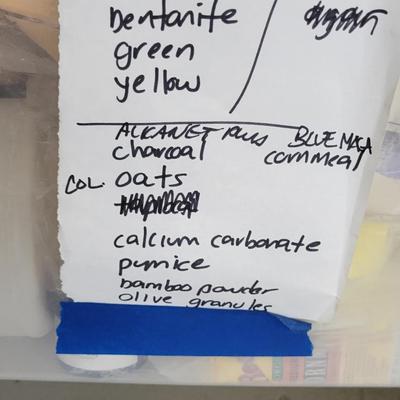 bentonite
green
yellow
ALKANET PLUS BLUE MAGA
charcoal cornmeal
COL. oats
calcium carbonate
pumice
bamboo powder
olive granules